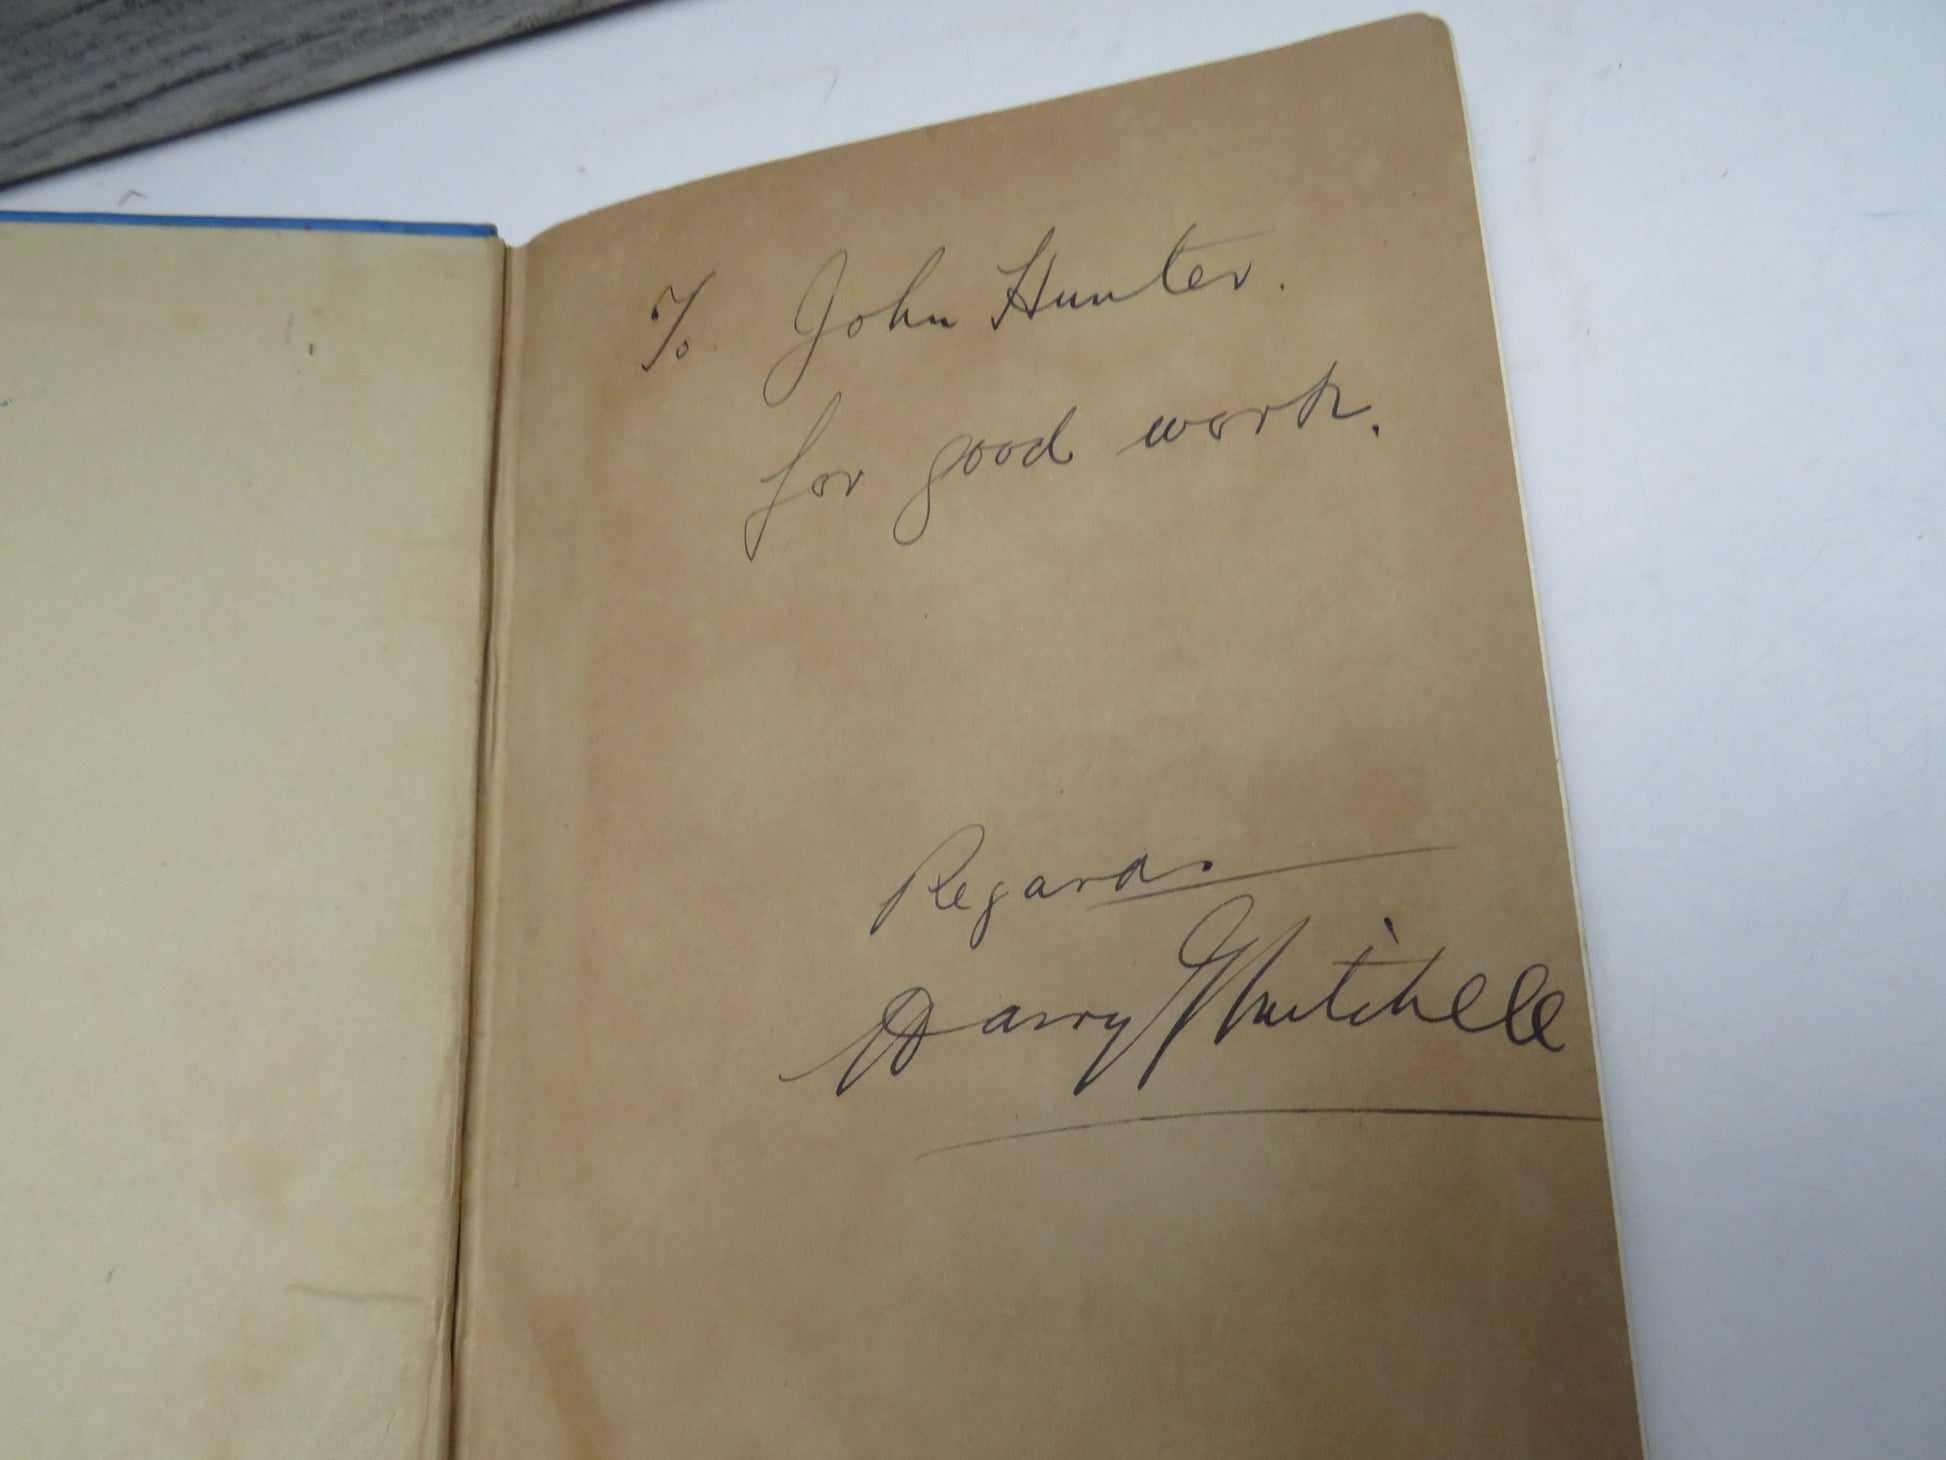 To John Hunter.
for good work.
Regards
Harry Mitchell